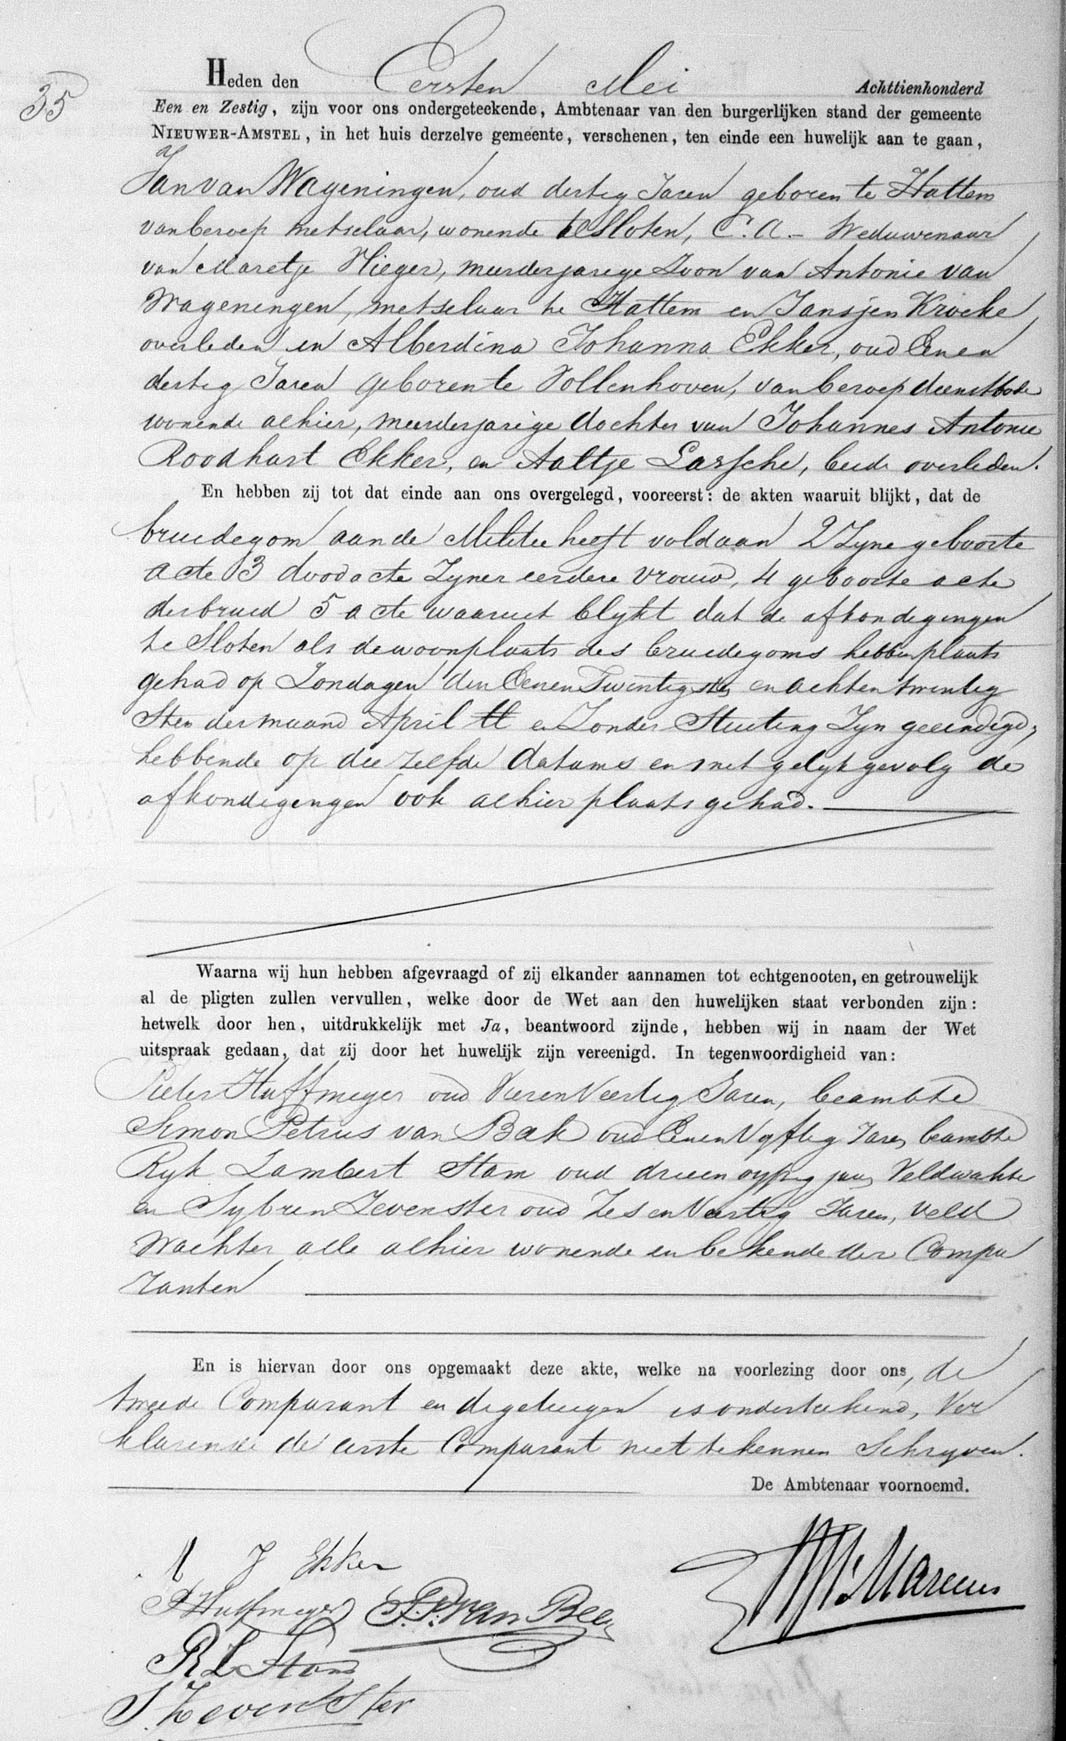 35
Heden den Eersten Mei Achttienhonderd
Een en Zestig, zijn voor ons ondergeteekende, Ambtenaar van den burgerlijken stand der gemeente
NIEUWER-AMSTEL, in het huis derzelve gemeente, verschenen, ten einde een huwelijk aan te gaan,
Jan van Wageningen, oud dertig Jaren geboren te Hattem
van beroep metselaar, wonende te Sloten, C.A. - Weduwenaar
van Maretje Hieger, meerderjarige Zoon van Antonie van
Wageningen, metselaar te Hattem en Jansjen Kroeke
overleden en Alberdina Johanna Ekker, oud Eenen
dertig Jaren geboren te Vollenhoven, van beroep dienstbode
wonende alhier, meerderjarige dochter van Johannes Antonie
Roodhart Ekker, en Aaltje Larsche, beide overleden.
En hebben zij tot dat einde aan ons overgelegd, vooreerst: de akten waaruit blijkt, dat de
bruidegom aan de Militie heeft voldaan 2 Zyne geboorte
acte 3 doodacte Zyner eerdere vrouw, 4 geboorte acte
der bruid 5 acte waaruit blykt dat de afkondigingen
te Sloten als de woonplaats des bruidegoms hebben plaats
gehad op Zondagen den Eenen Twentigste en achten twintig
sten der maand April ll en Zonder Stuiting Zyn geeindigd,
hebbende op die zelfde datums en met gelyk gevolg de
afkondigingen ook alhier plaats gehad.
Waarna wij hun hebben afgevraagd of zij elkander aannamen tot echtgenooten, en getrouwelijk
al de pligten zullen vervullen, welke door de Wet aan den huwelijken staat verbonden zijn:
hetwelk door hen, uitdrukkelijk met Ja, beantwoord zijnde, hebben wij in naam der Wet
uitspraak gedaan, dat zij door het huwelijk zijn vereenigd. In tegenwoordigheid van:
Pieter Huffmeyer oud Vieren Veertig Jaren, beambte
Simon Petrus van Bek oud Eenen Vyftig Jaren beambte
Ryk Lambert Stam oud drieen vyftig jaren Veldwachter
en Sybren Zevenster oud Zes en Veertig Jaren, Veld
Wachter alle alhier wonende en bekende der Compa
ranten
En is hiervan door ons opgemaakt deze akte, welke na voorlezing door ons, de
tweede Comparant en de getuigen is onderteekend, Ver
klarende de eerste Comparant niet te kennen Schryven.
De Ambtenaar voornoemd.
A J Ekker
P Huffmeyer S.P. van Bek
R L Stam
S. Zevenster
Marcus